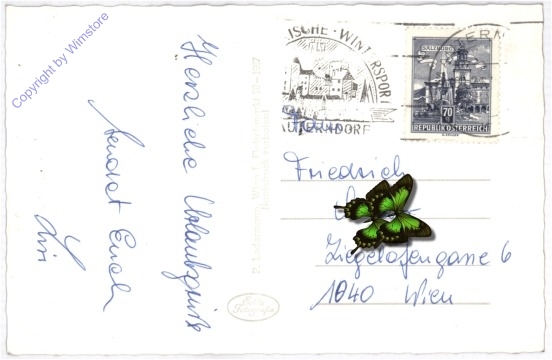 Copyright by Wimstore
Herzliche Urlaubsgrüße
sendet Euch
ISCHE · WINTERSPORT
MAUTERNDORF
SALZBURG
70
REPUBLIK ÖSTERREICH
TERN
Friedrich
Ziegelofengasse 6
1040 Wien
Echte
Fotografie